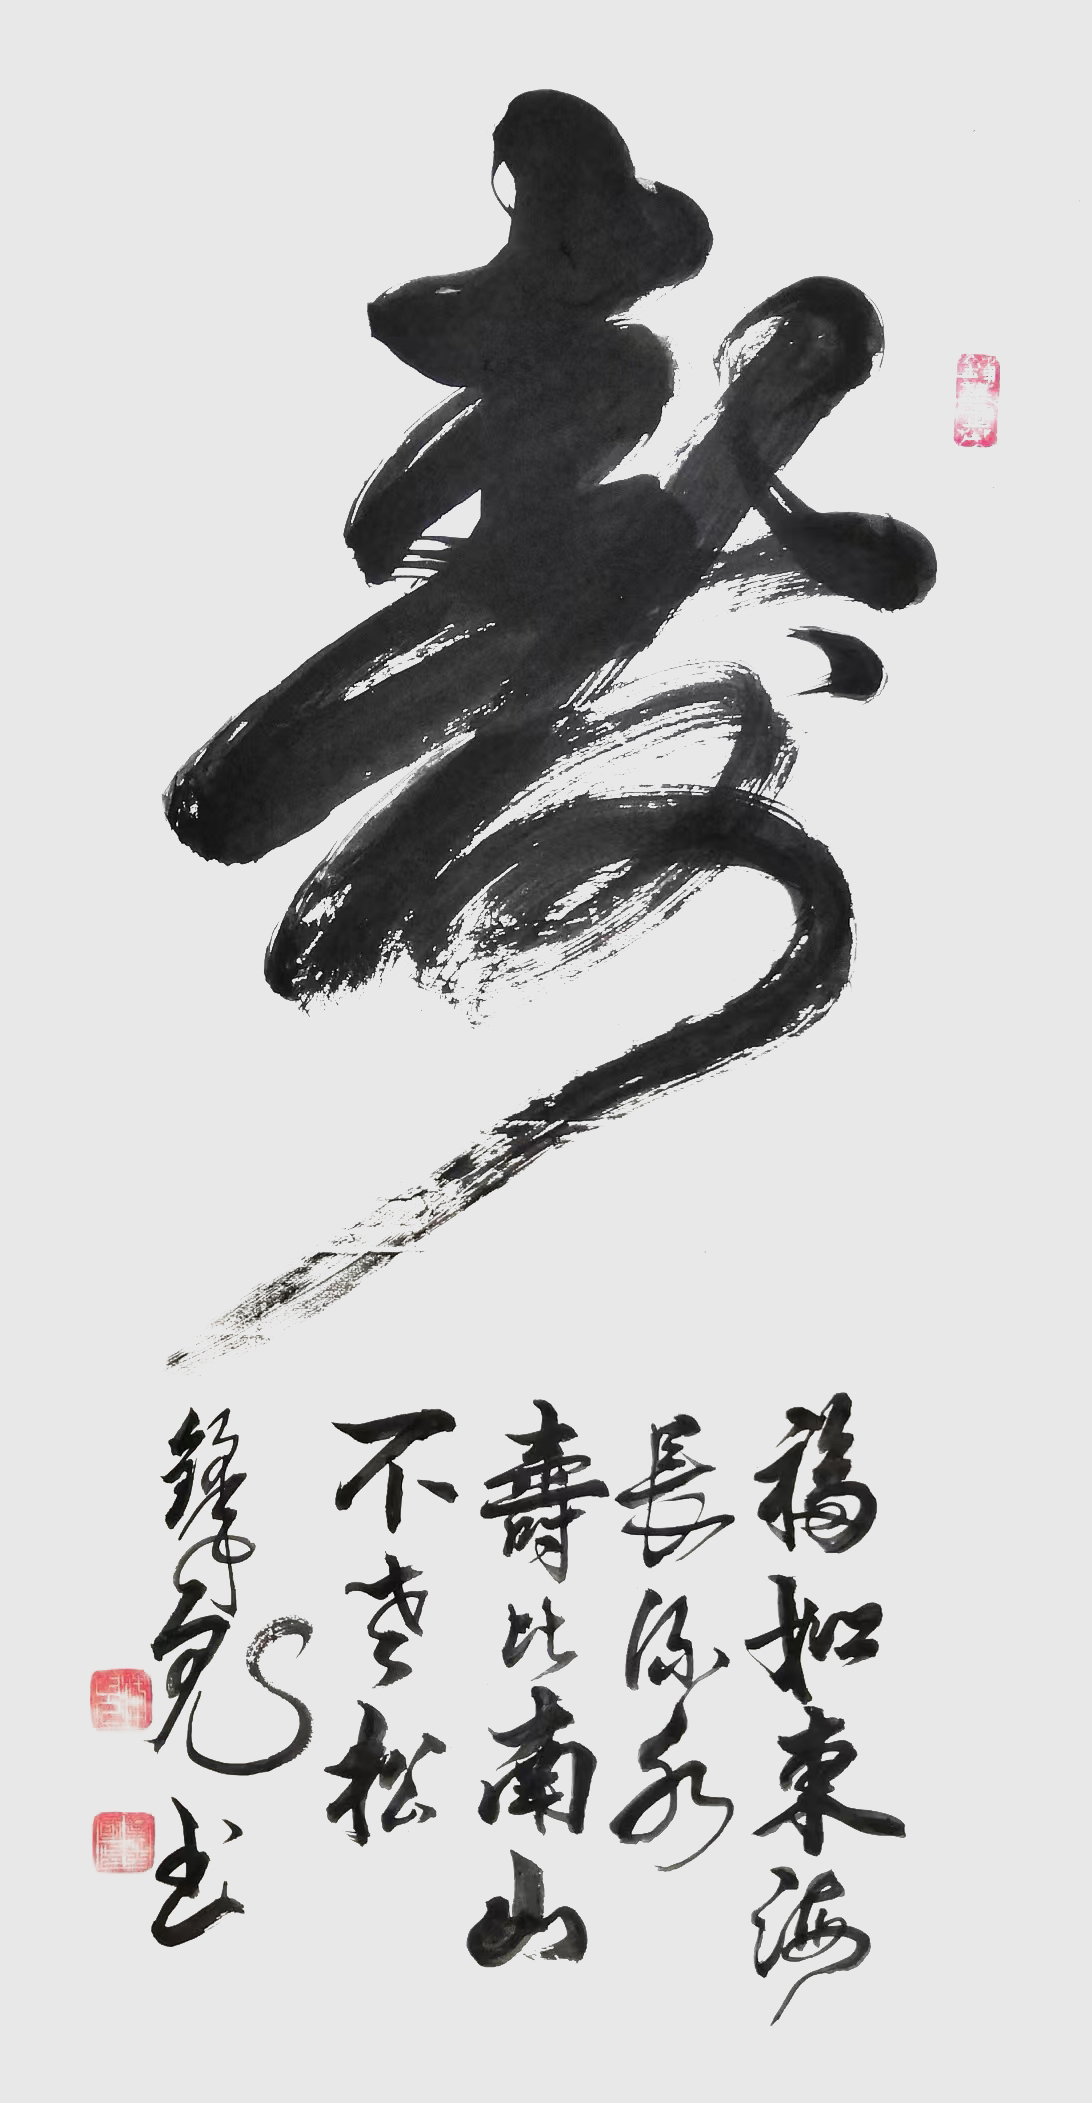 壽
福如東海
長流水
壽比南山
不老松
书